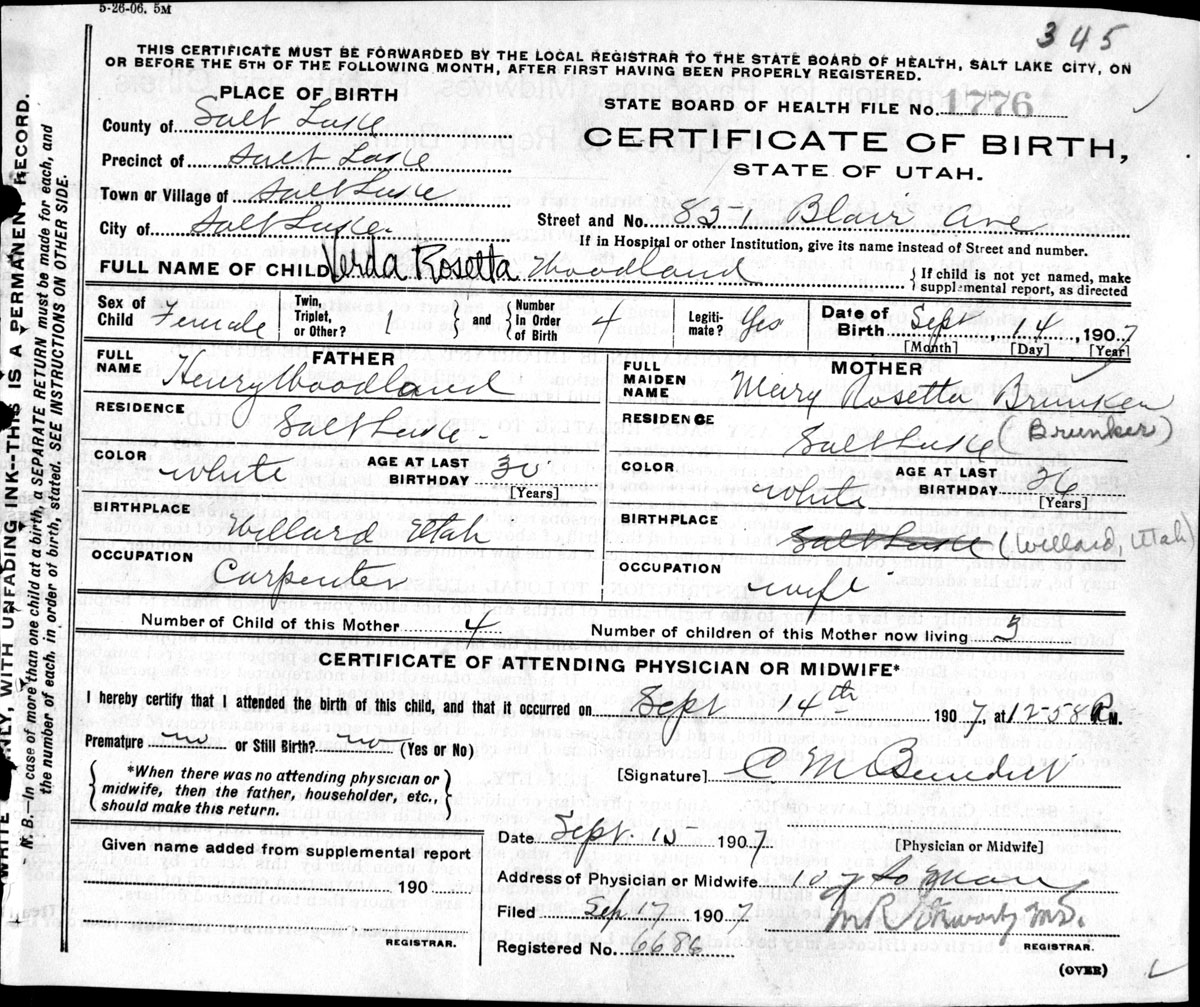 5-26-06. 5M
345
THIS CERTIFICATE MUST BE FORWARDED BY THE LOCAL REGISTRAR TO THE STATE BOARD OF HEALTH, SALT LAKE CITY, ON
OR BEFORE THE 5TH OF THE FOLLOWING MONTH, AFTER FIRST HAVING BEEN PROPERLY REGISTERED.
WRITE ONLY, WITH UNFADING INK--THIS IS A PERMANENT RECORD.
N. B. In case of more than one child at a birth, a SEPARATE RETURN must be made for each, and
the number of each, in order of birth, stated. SEE INSTRUCTIONS ON OTHER SIDE.
PLACE OF BIRTH
STATE BOARD OF HEALTH FILE No. 1776
County of Salt Lake
CERTIFICATE OF BIRTH,
Precinct of Salt Lake
STATE OF UTAH.
Town or Village of Salt Lake
City of Salt Lake
Street and No. 821 Blair Ave
If in Hospital or other Institution, give its name instead of Street and number.
FULL NAME OF CHILD Verda Rosetta Woodland
If child is not yet named, make
supplemental report, as directed
Sex of Child Female
Twin, Triplet, or Other? 1
and
Number In Order of Birth 4
Legiti- mate? Yes
Date of Birth Sept 14, 1907
[Month] [Day] [Year]
FATHER
FULL NAME Henry Woodland
MOTHER
FULL MAIDEN NAME Mary Rosetta Brinken
RESIDENCE Salt Lake
RESIDENCE Salt Lake (Brunker)
COLOR White AGE AT LAST BIRTHDAY 30 [Years]
COLOR White AGE AT LAST BIRTHDAY [Years]
BIRTHPLACE Willard Utah
BIRTHPLACE Salt Lake (Willard, Utah)
OCCUPATION Carpenter
OCCUPATION wife
Number of Child of this Mother 4 Number of children of this Mother now living 3
CERTIFICATE OF ATTENDING PHYSICIAN OR MIDWIFE*
I hereby certify that I attended the birth of this child, and that it occurred on Sept 14th 1907, at 12-58 P.M.
Premature no or Still Birth? no (Yes or No)
*When there was no attending physician or
midwife, then the father, householder, etc.,
should make this return.
[Signature] C M Benedict
Given name added from supplemental report
190
REGISTRAR.
Date Sept. 15 1907
[Physician or Midwife]
Address of Physician or Midwife 107 So Main
Filed Sep 17 1907
Registered No. 6686
REGISTRAR.
(OVER)